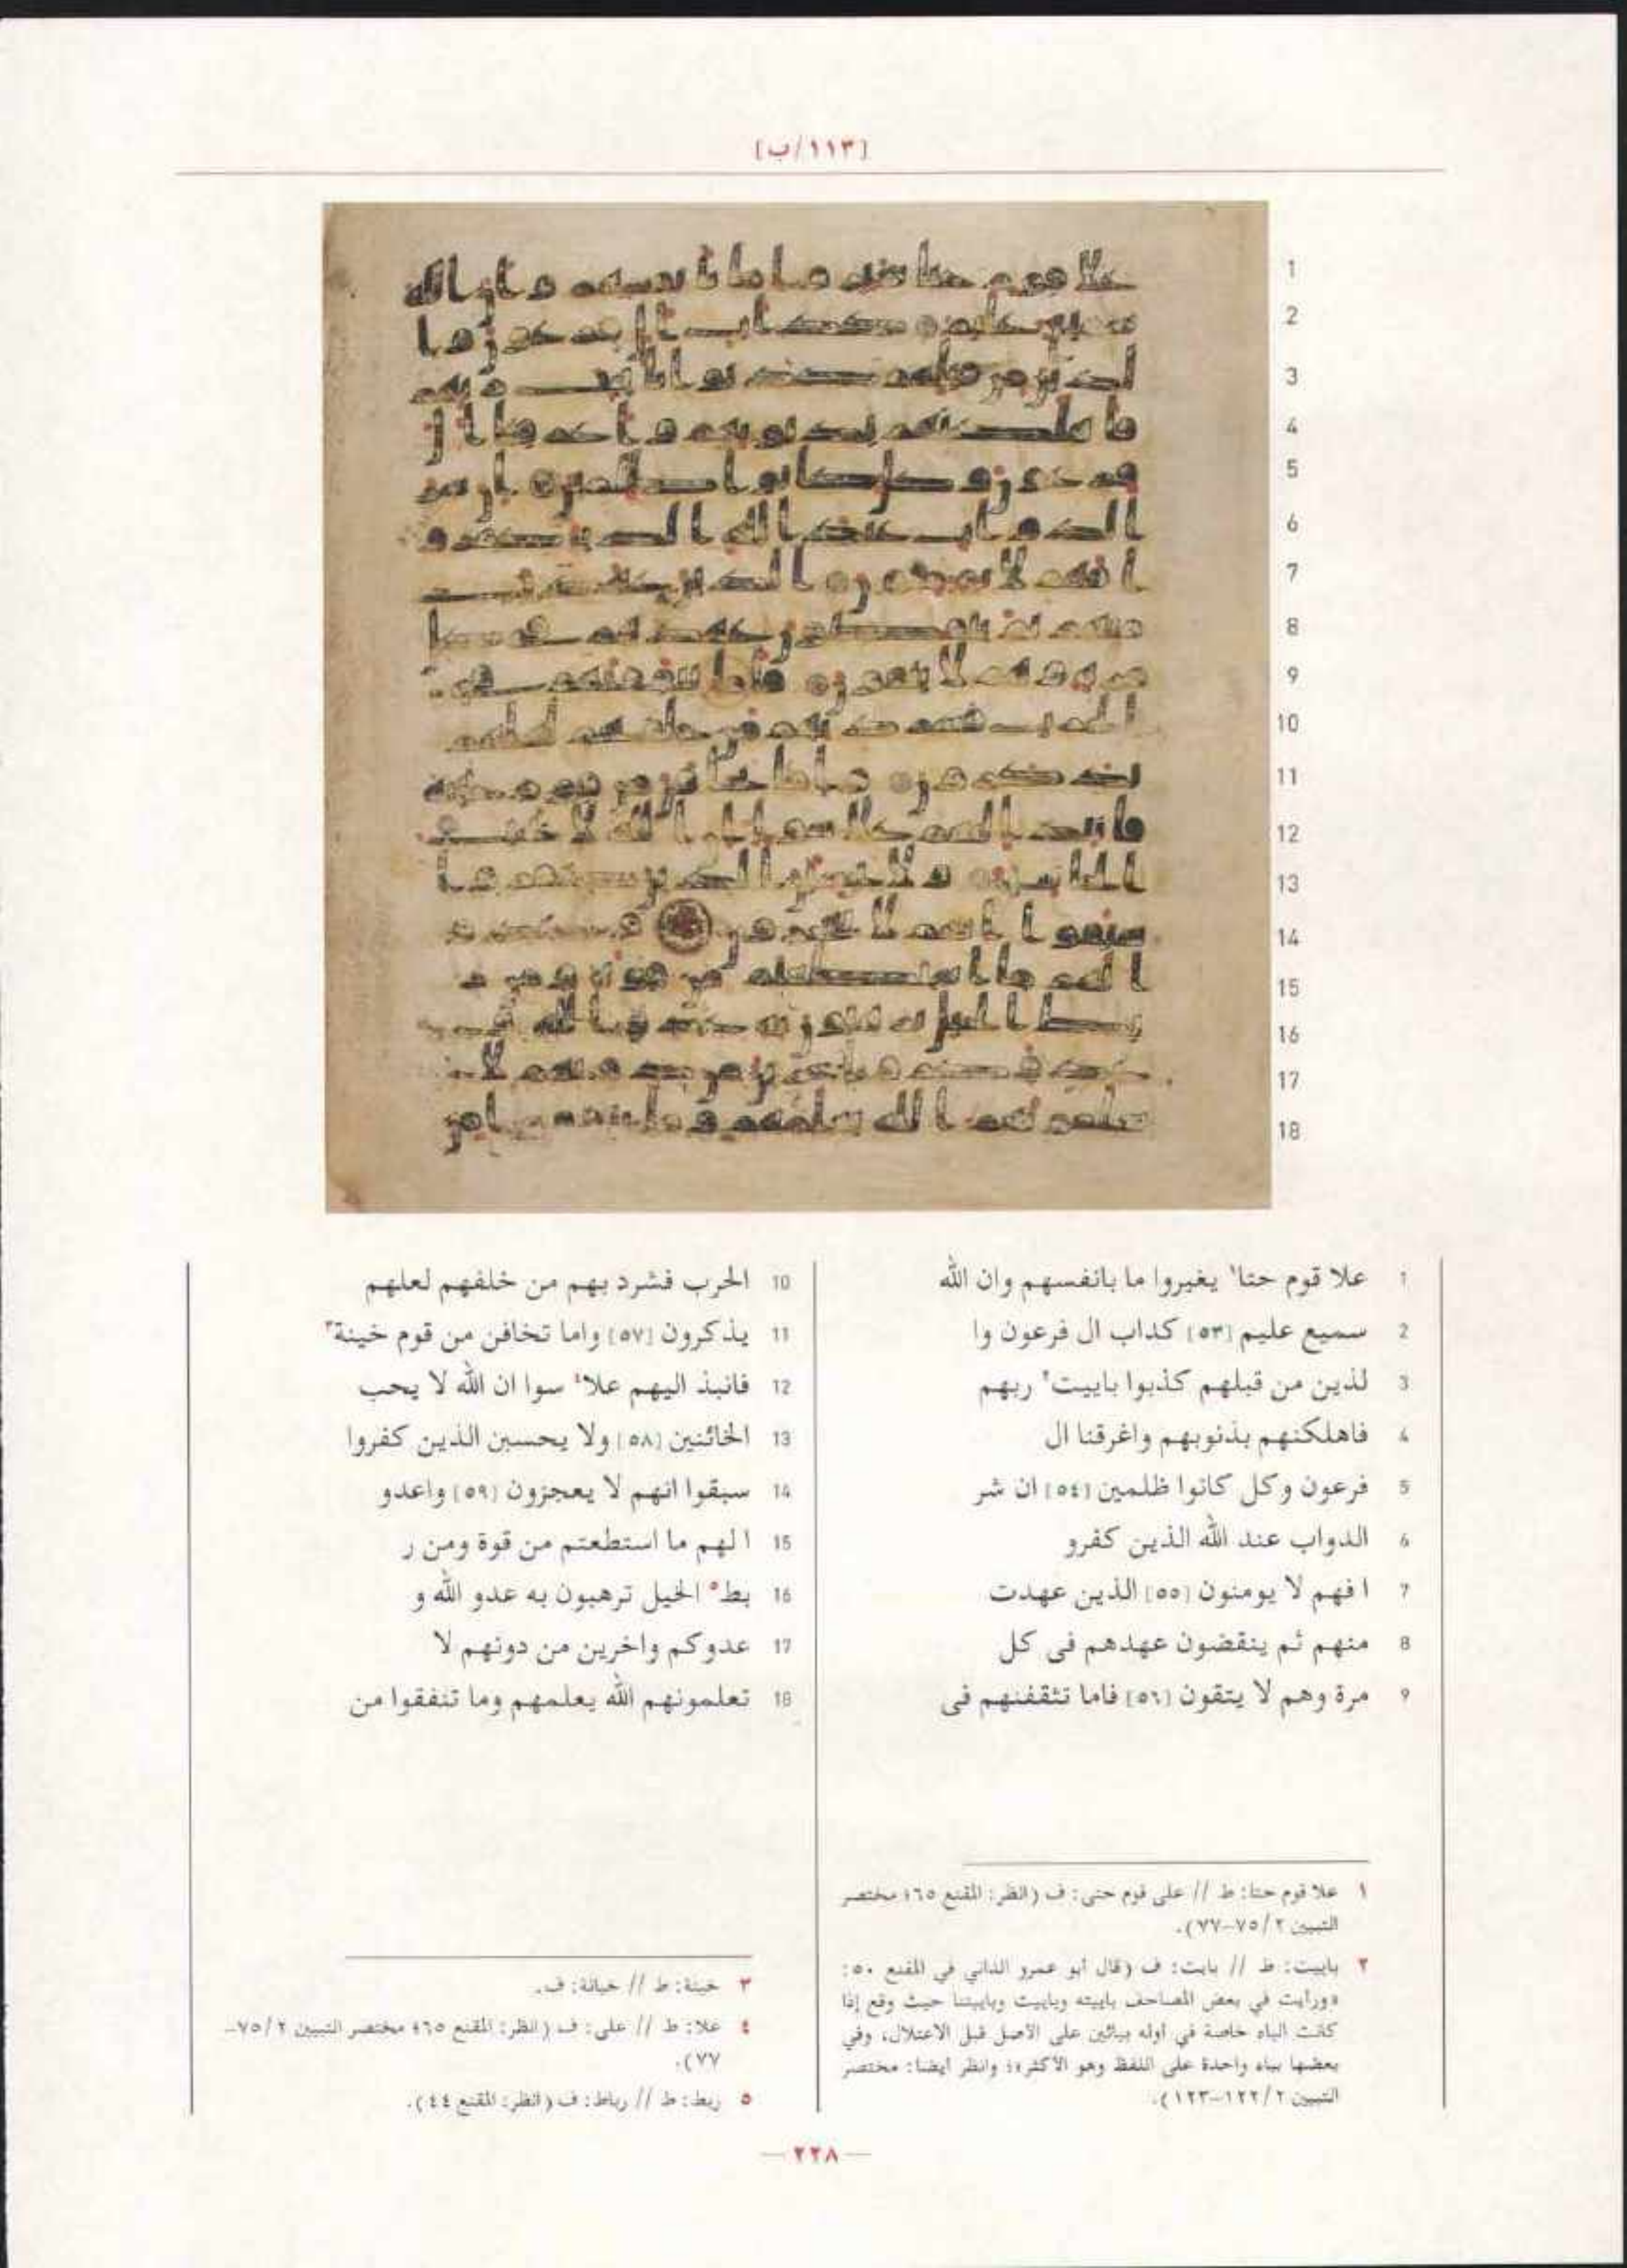 [١١٣/ب]
1 علا قوم حتا١ يغيروا ما بانفسهم وان الله
2 سميع عليم [٥٣] كداب ال فرعون وا
3 لذين من قبلهم كذبوا باييت٢ ربهم
4 فاهلكنهم بذنوبهم واغرقنا ال
5 فرعون وكل كانوا ظلمين [٥٤] ان شر
6 الدواب عند الله الذين كفرو
7 ا فهم لا يومنون [٥٥] الذين عهدت
8 منهم ثم ينقضون عهدهم فى كل
9 مرة وهم لا يتقون [٥٦] فاما تثقفنهم فى
10 الحرب فشرد بهم من خلفهم لعلهم
11 يذكرون [٥٧] واما تخافن من قوم خينة٣
12 فانبذ اليهم علا٤ سوا ان الله لا يحب
13 الخائنين [٥٨] ولا يحسبن الذين كفروا
14 سبقوا انهم لا يعجزون [٥٩] واعدو
15 ا لهم ما استطعتم من قوة ومن ر
16 بط٥ الخيل ترهبون به عدو الله و
17 عدوكم واخرين من دونهم لا
18 تعلمونهم الله يعلمهم وما تنفقوا من
١ علا قوم حتا: ط // على قوم حتى: ف (انظر: المقنع ٦٥؛ مختصر
التبيين ٢/ ٧٥-٧٧).
٢ باييت: ط // بايت: ف (قال أبو عمرو الداني في المقنع ٥٠:
«ورأيت في بعض المصاحف باييته وباييت وباييتنا حيث وقع إذا
كانت الباء خاصة في أوله بيائين على الأصل قبل الاعتلال، وفي
بعضها بياء واحدة على اللفظ وهو الأكثر»؛ وانظر أيضا: مختصر
التبيين ٢/ ١٢٢-١٢٣).
٣ خينة: ط // خيانة: ف.
٤ علا: ط // على: ف (انظر: المقنع ٦٥؛ مختصر التبيين ٢/ ٧٥-
٧٧).
٥ ربط: ط // رباط: ف (انظر: المقنع ٤٤).
— ٢٢٨ —